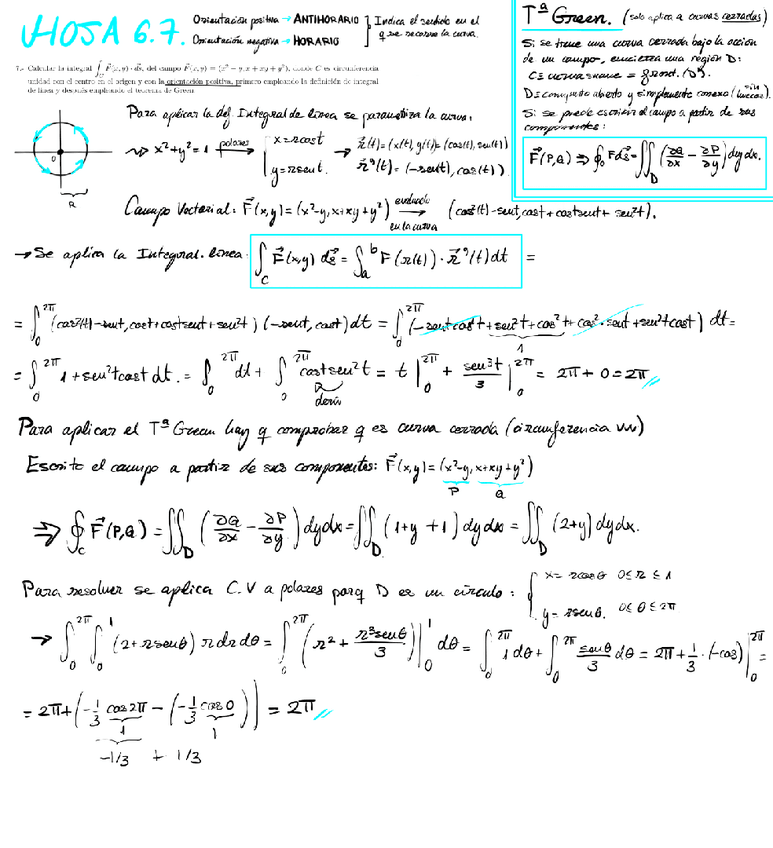 HOJA 6.7.
Orientación positiva → ANTIHORARIO
Orientación negativa → HORARIO
Indica el sentido en el
q se recorre la curva.
7.- Calcular la integral ∫_C F(x,y) · ds, del campo F(x,y) = (x² − y, x + xy + y²), donde C es circunferencia
unidad con el centro en el origen y con la orientación positiva, primero empleando la definición de integral
de línea y después empleando el teorema de Green
Tª Green. (solo aplica a curvas cerradas)
Si se tiene una curva cerrada bajo la acción
de un campo, encierra una región D:
C = curva suave = front. (D).
D = conjunto abierto y simplemente conexo (sin huecos).
Si se puede escribir el campo a partir de sus
componentes:
F(P,Q) ⇒ ∮ F ds = ∬_D (∂Q/∂x − ∂P/∂y) dy dx.
0
R
Para aplicar la def Integral de línea se parametriza la curva:
x²+y²=1 polares → { x = r cos t
y = r sen t.
→ r(t) = (x(t), y(t)) = (cos(t), sen(t))
r'(t) = (−sen(t), cos(t)).
Campo Vectorial: F(x,y) = (x²−y, x+xy+y²) evaluado en la curva → (cos²(t)−sent, cost + cost sent + sen²t).
→ Se aplica la Integral. línea: ∫_C F(x,y) ds = ∫_a^b F(r(t)) · r'(t) dt =
= ∫_0^2π (cos²(t)−sent, cost+cost sent+sen²t) (−sent, cost) dt = ∫_0^2π (−sent cos²t + sen²t + cos²t + cos²·sent + sen²t cost) dt =
1
= ∫_0^2π 1 + sen²t cost dt. = ∫_0^2π dt + ∫_0^2π cost sen²t = t |_0^2π + sen³t/3 |_0^2π = 2π + 0 = 2π
deriv
Para aplicar el Tª Green hay q comprobar q es curva cerrada (circunferencia)
Escribo el campo a partir de sus componentes: F(x,y) = (x²−y, x+xy+y²)
P Q
⇒ ∮_C F(P,Q) = ∬_D (∂Q/∂x − ∂P/∂y) dy dx = ∬_D (1+y+1) dy dx = ∬_D (2+y) dy dx.
Para resolver se aplica C.V a polares porq D es un círculo: { x = r cosθ 0≤r≤1
y = r senθ. 0≤θ≤2π
→ ∫_0^2π ∫_0^1 (2+r senθ) r dr dθ = ∫_0^2π (r² + r³senθ/3) |_0^1 dθ = ∫_0^2π 1 dθ + ∫_0^2π senθ/3 dθ = 2π + 1/3 · (−cos) |_0^2π =
= 2π + (−1/3 cos2π − (−1/3 cos0)) = 2π
1 1
−1/3 + 1/3